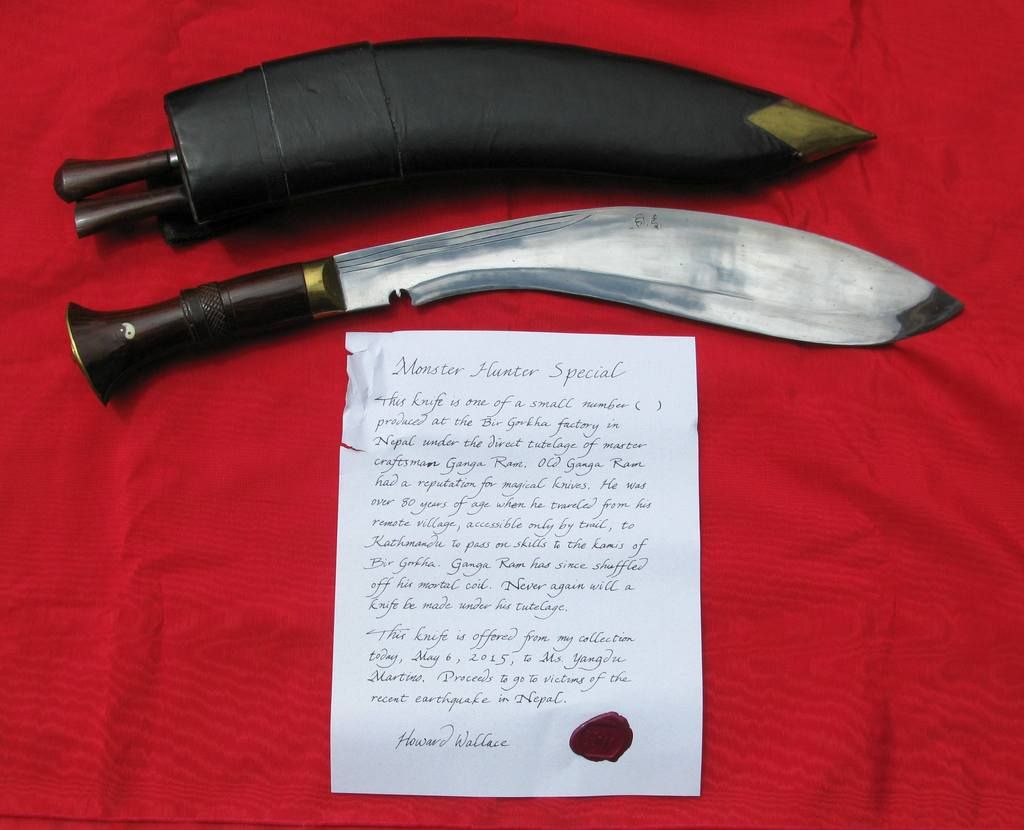 Monster Hunter Special
This knife is one of a small number ( )
produced at the Bir Gorkha factory in
Nepal under the direct tutelage of master
craftsman Ganga Ram. Old Ganga Ram
had a reputation for magical knives. He was
over 80 years of age when he traveled from his
remote village, accessible only by trail, to
Kathmandu to pass on skills to the kamis of
Bir Gorkha. Ganga Ram has since shuffled
off his mortal coil. Never again will a
knife be made under his tutelage.
This knife is offered from my collection
today, May 6, 2015, to Ms. Yangdu
Martino. Proceeds to go to victims of the
recent earthquake in Nepal.
Howard Wallace